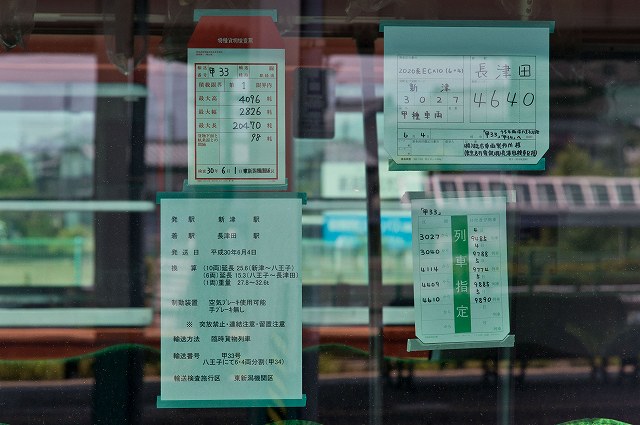 特種貨物検査票
甲33
積載限界 第1 限界内
最大高 4096 粍
最大幅 2826 粍
最大長 20470 粍
98 粍
30年6月1日
2020系EC×10(6+4)
長津田
新津
3027
4640
甲種車両
6月4日
「甲33」
発駅 新津 駅
着駅 長津田 駅
発送日 平成30年6月4日
換算 (10両)延長 25.6(新津~八王子)
(6両)延長 15.3(八王子~長津田)
(1両)重量 27.8~32.6t
制動装置 空気ブレーキ使用可能
手ブレーキ無し
※ 突放禁止・連結注意・留置注意
輸送方法 臨時貨物列車
輸送番号 甲33号
八王子にて6・4両分割(甲34)
輸送検査施行区 東新潟機関区
「甲33」
列車指定
3027
3040
4114
4409
4610
9485
9788
9774
9885
9890